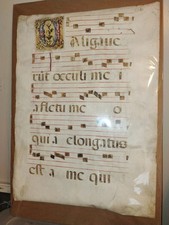 Caligaue
rūt occuli me i
a fletu me o
qui a elongatus
est a me qui